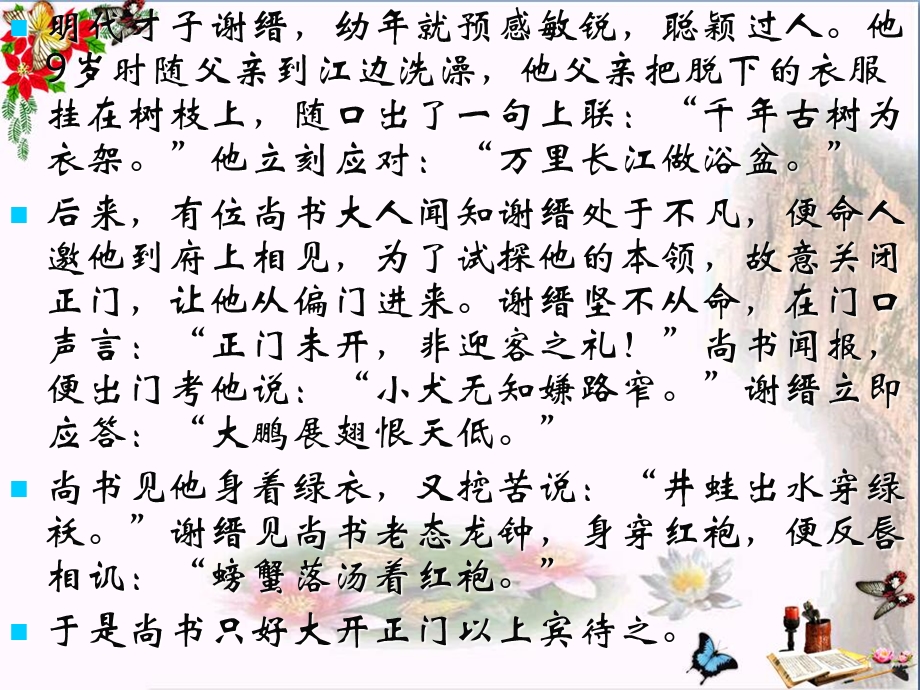 明代才子谢缙，幼年就预感敏锐，聪颖过人。他
9岁时随父亲到江边洗澡，他父亲把脱下的衣服
挂在树枝上，随口出了一句上联：“千年古树为
衣架。”他立刻应对：“万里长江做浴盆。”
后来，有位尚书大人闻知谢缙处于不凡，便命人
邀他到府上相见，为了试探他的本领，故意关闭
正门，让他从偏门进来。谢缙坚不从命，在门口
声言：“正门未开，非迎客之礼！”尚书闻报，
便出门考他说：“小犬无知嫌路窄。”谢缙立即
应答：“大鹏展翅恨天低。”
尚书见他身着绿衣，又挖苦说：“井蛙出水穿绿
袄。”谢缙见尚书老态龙钟，身穿红袍，便反唇
相讥：“螃蟹落汤着红袍。”
于是尚书只好大开正门以上宾待之。